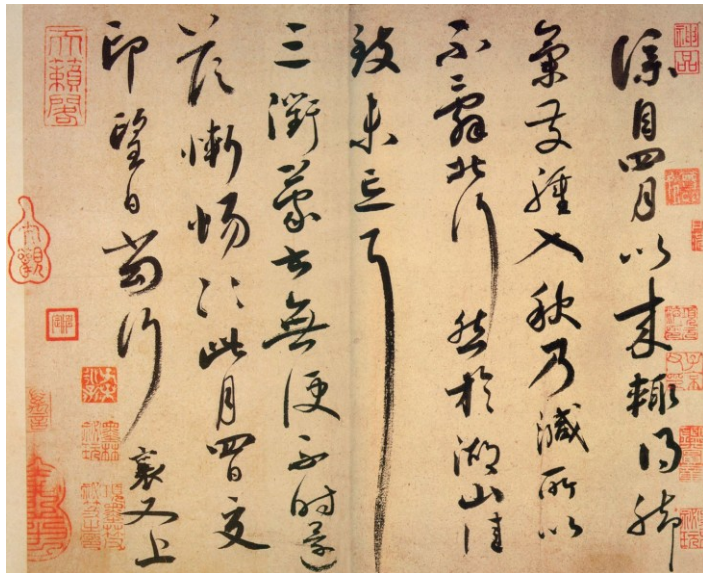 神品
僕自四月以来輙得脚
氣發腫入秋乃減所以
不辭北行然於湖山佳
致未忘耳
三衢蒙書無便不時還
荅慚惕〻此月四日交
印望日當行襄又上
天籟閣